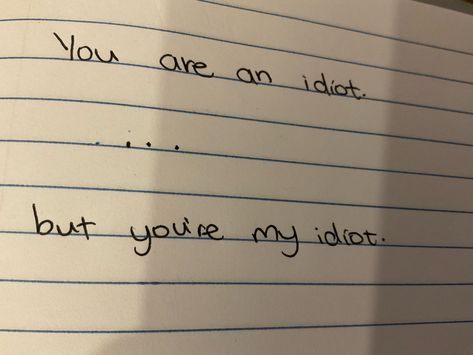 You are an idiot.
...
but you're my idiot.